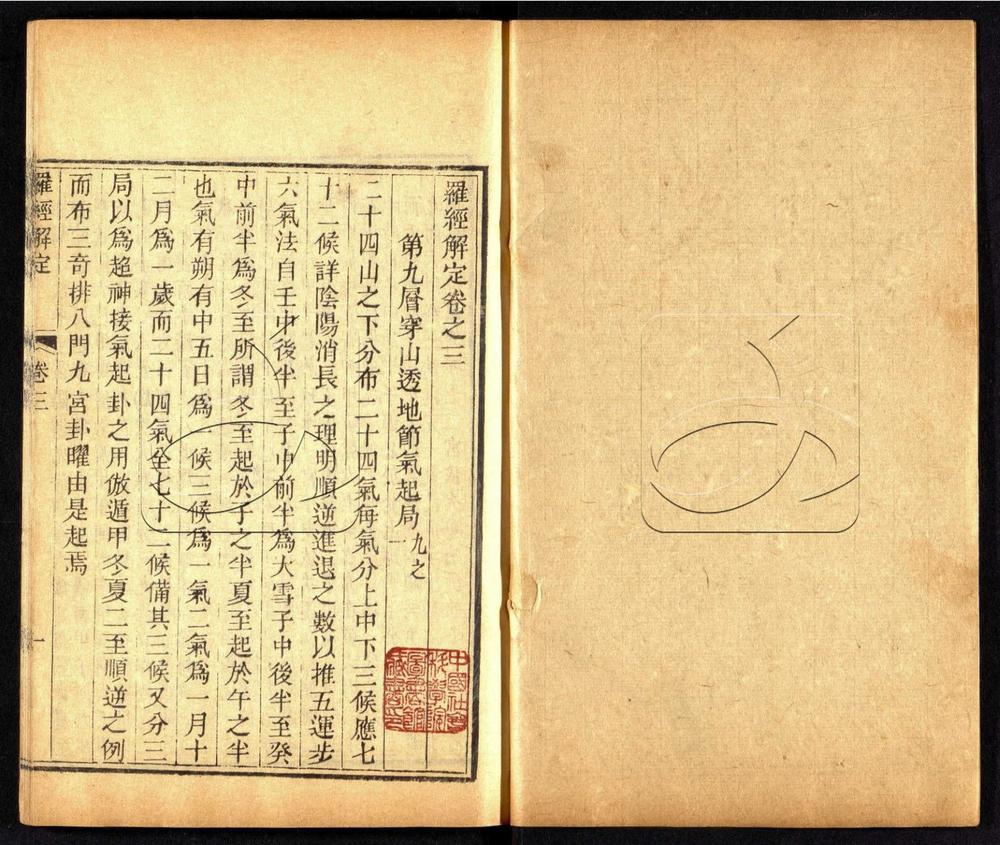 羅經解定卷之三
第九層穿山透地節氣起局九之一
二十四山之下分布二十四氣每氣分上中下三候應七
十二候詳陰陽消長之理明順逆進退之數以推五運步
六氣法自壬中後半至子中前半爲大雪子中後半至癸
中前半爲冬至所謂冬至起於子之半夏至起於午之半
也氣有朔有中五日爲一候三候爲一氣二氣爲一月十
二月爲一歲而二十四氣全七十二候備其三候又分三
局以爲超神接氣起卦之用倣遁甲冬夏二至順逆之例
而布三奇排八門九宮卦曜由是起焉
羅經解定
卷三
一
中國社會
科學院
圖書館
藏書印